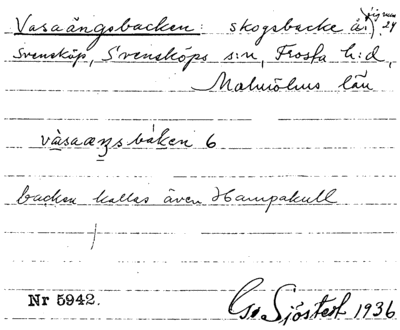 Vasaängsbacken: skogsbacke å
Svensköp, Svensköps s:n, Frosta h:d,
Malmöhus län
vàsaæŋsbáken 6
backen kallas även Hampakull
Nr 5942.
Sjöstedt 1936